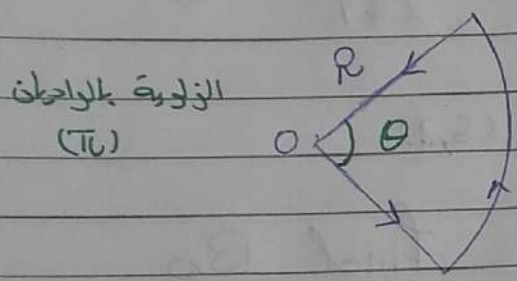 R
الزاوية بالراديان
(π)
O θ